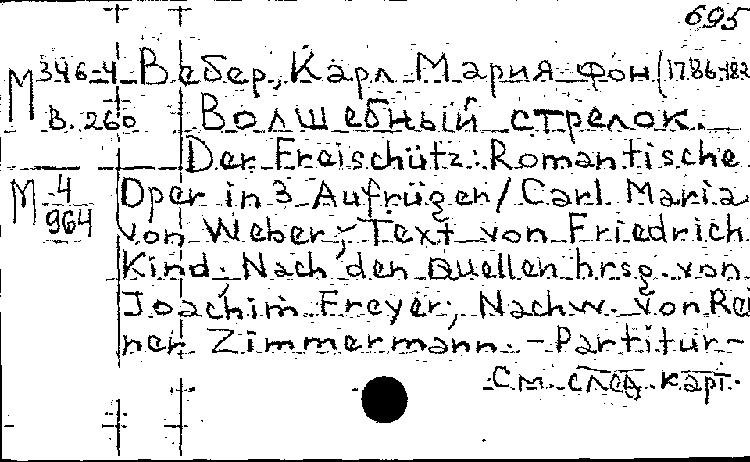 695
М 346-4 Вебер, Карл Мария фон (1786-182
В. 260 Волшебный стрелок.
Der Freischütz: Romantische
М 4/964 Oper in 3 Aufrügen / Carl Maria
von Weber; Text von Friedrich
Kind; Nach den Quellen hrsg. von
Joachim Freyer; Nachw. von Rei
ner Zimmermann. - Partitur -
См. след. карт.